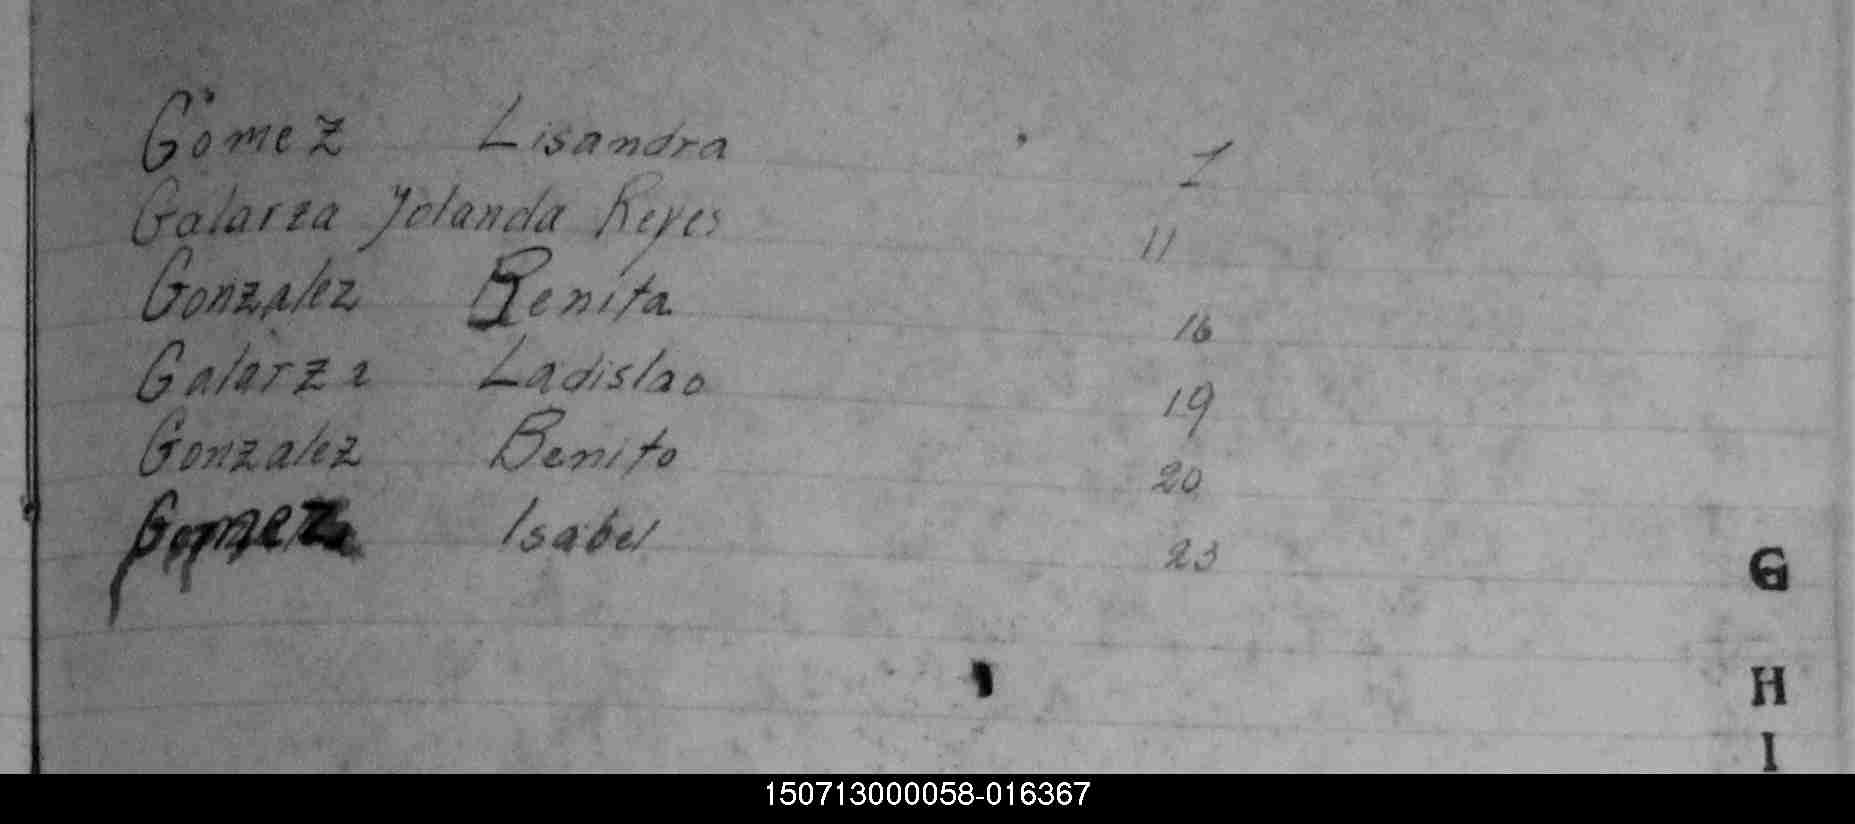 Gómez Lisandra 1
Galarza Yolanda Reyes 11
Gonzalez Benita 16
Galarza Ladislao 19
Gonzalez Benito 20
Gomez Isabel 23
G
H
I
150713000058-016367